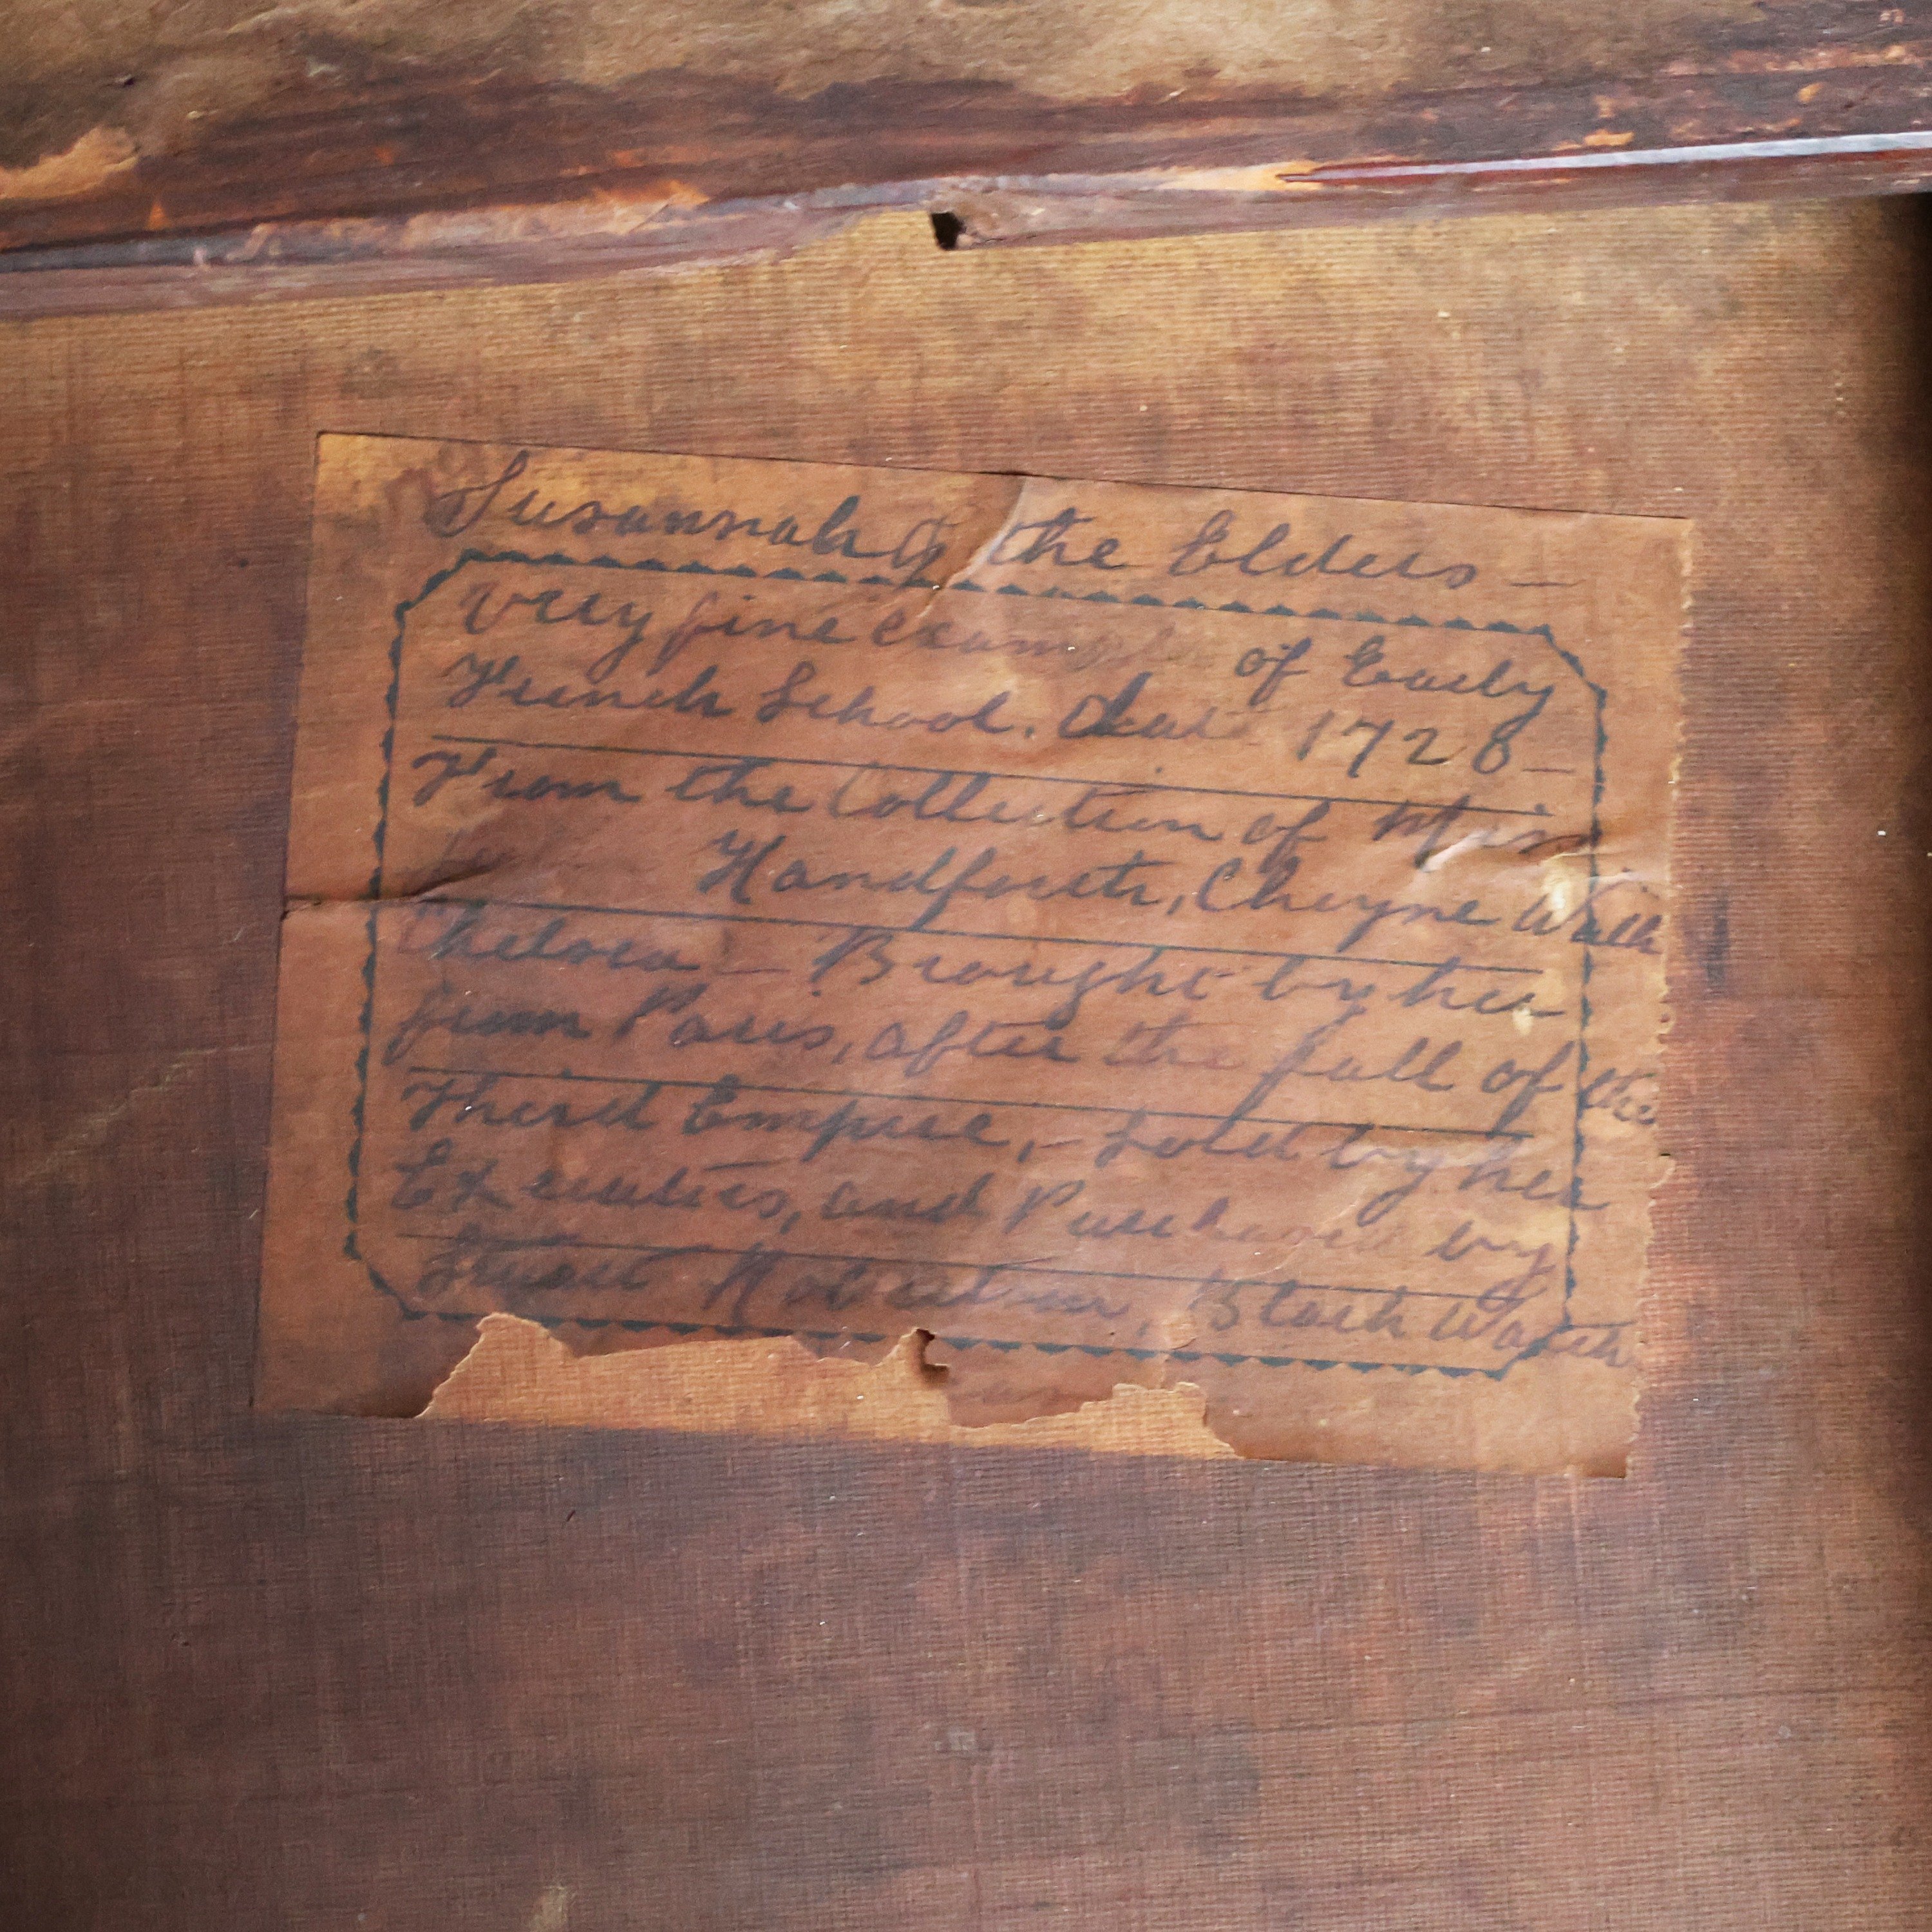 Susannah & the Elders —
very fine example of Early
French School. Date 1728 —
From the Collection of Miss
Handforth, Cheyne Walk
Chelsea, — Brought by her
from Paris, after the fall of the
Third Empire, — Sold by her
Executors, and Purchased by
Stuart Robertson, Black Watch